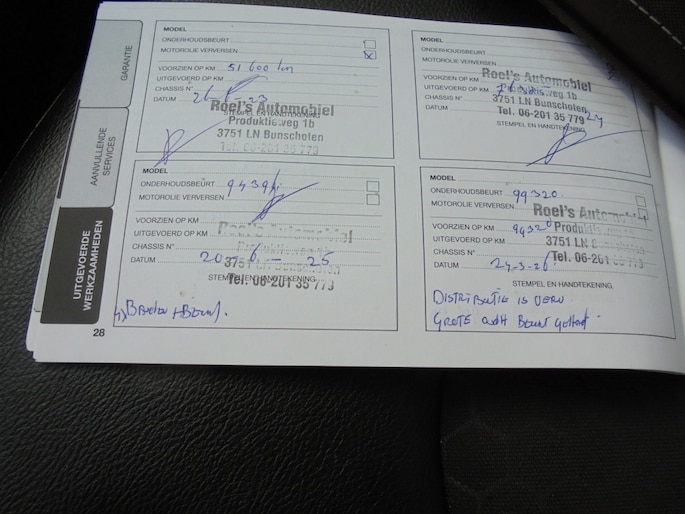 GARANTIE
AANVULLENDE
SERVICES
UITGEVOERDE
WERKZAAMHEDEN
28
MODEL
ONDERHOUDSBEURT
MOTOROLIE VERVERSEN
VOORZIEN OP KM 51600 km
UITGEVOERD OP KM
CHASSIS N°
DATUM
STEMPEL EN HANDTEKENING
Roel's Automobiel
Produktieweg 1b
3751 LN Bunschoten
Tel. 06-201 35 779
MODEL
ONDERHOUDSBEURT
MOTOROLIE VERVERSEN
VOORZIEN OP KM
UITGEVOERD OP KM
CHASSIS N°
DATUM 20-6-25
STEMPEL EN HANDTEKENING
Roel's Automobiel
Produktieweg 1b
3751 LN Bunschoten
Tel. 06-201 35 779
MODEL
ONDERHOUDSBEURT
MOTOROLIE VERVERSEN
VOORZIEN OP KM
UITGEVOERD OP KM
CHASSIS N°
DATUM
STEMPEL EN HANDTEKENING
Roel's Automobiel
Produktieweg 1b
3751 LN Bunschoten
Tel. 06-201 35 779
MODEL
ONDERHOUDSBEURT 99320
MOTOROLIE VERVERSEN
VOORZIEN OP KM
UITGEVOERD OP KM
CHASSIS N°
DATUM 24-3-26
STEMPEL EN HANDTEKENING
Roel's
3751 LN Bunschoten
Tel. 06-201 35 779
DISTRIBUTIE IS
GROTE Beurt